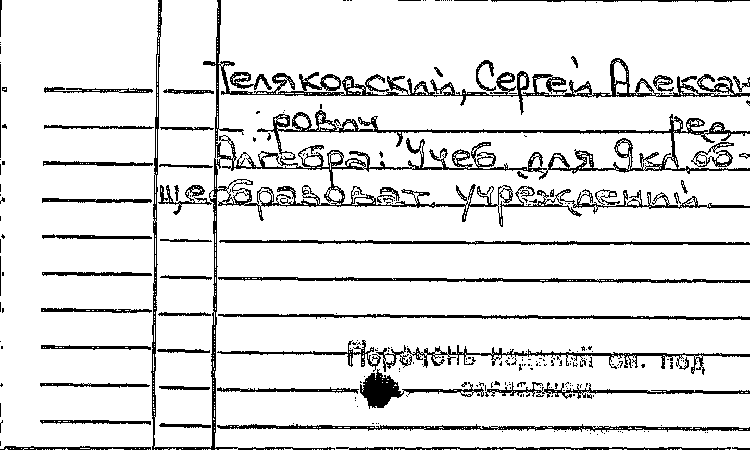 Теляковский, Сергей Алексан
рович, ред
Алгебра: Учеб. для 9кл. об-
щеобразоват. учреждений.
Перечень изданий см. под
заглавием